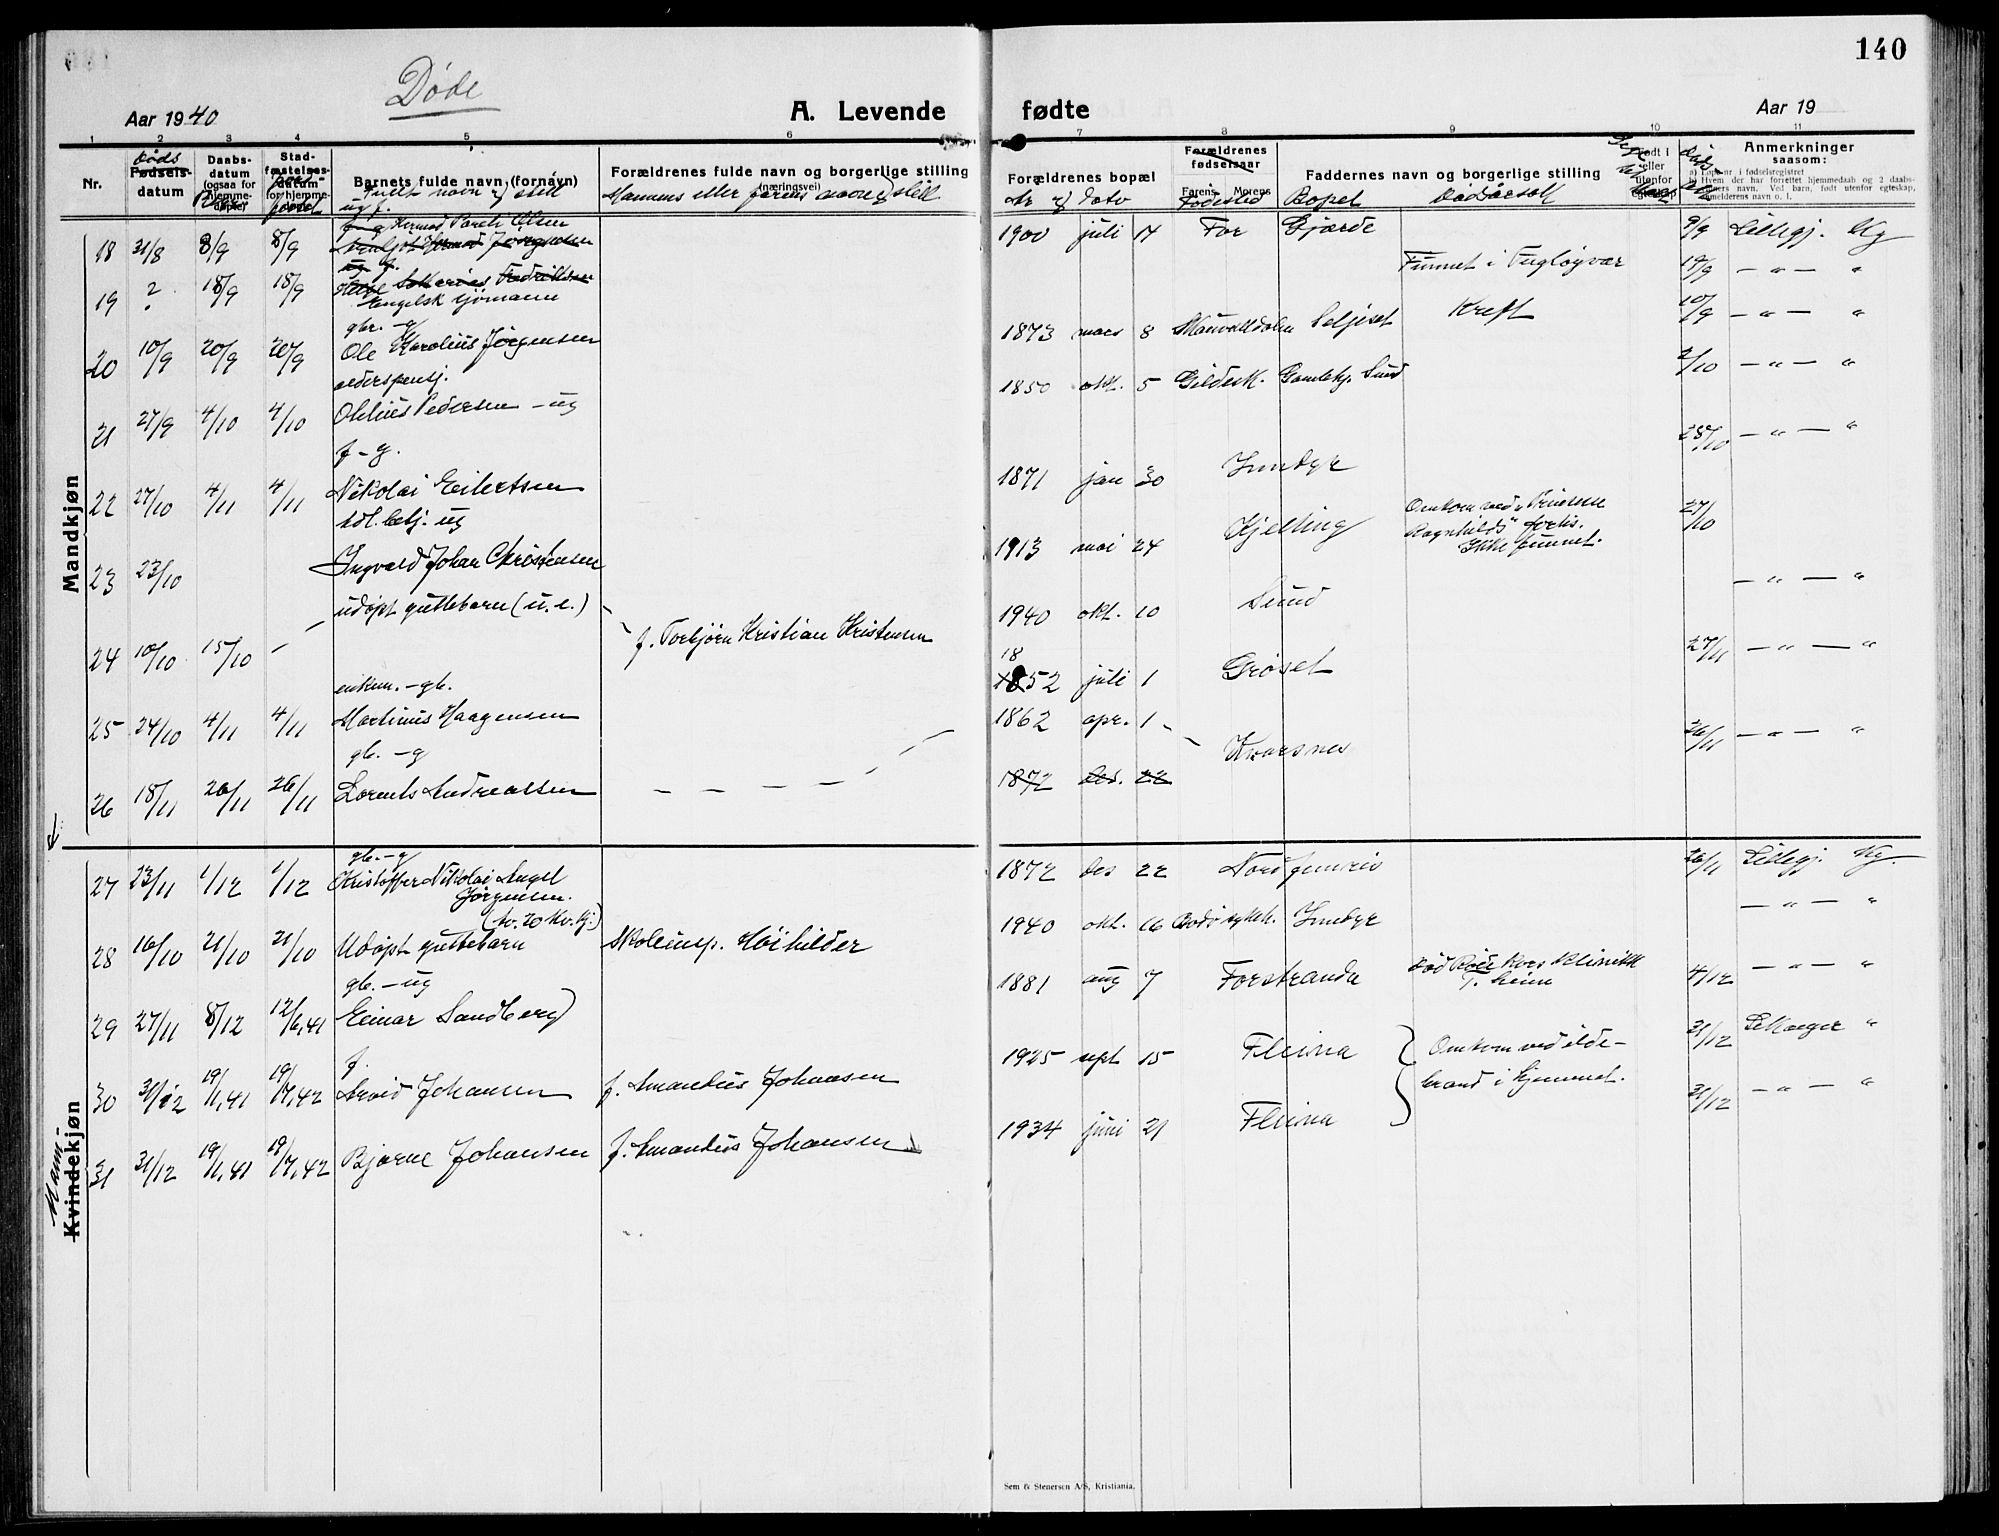 140
Døde
Aar 1940
A. Levende
fødte
Aar 19
1 2 3 4 5 6 7 8 9 10 11
Nr.
Døds
Fødsels-
datum
Daabs-
datum
(ogsaa for
hjemme-
døpte)
Stad-
fæstelses-
datum
for hjemme-
døpte
Barnets fulde navn (fornavn)
Fullt navn og still
Forældrenes fulde navn og borgerlige stilling
(næringsvei)
Mannens eller farens navn og still
Forældrenes bopæl
År og dato
Forældrenes
fødselsaar
Farens Morens
Fødested
Faddernes navn og borgerlige stilling
Bopel
Dødsårsak
Født i
eller
utenfor
egteskap
Anmerkninger
saasom:
Mandkjøn
ug f.
f – g Hermod Pareli Olsen
18 31/8 8/9 8/9
1900 juli 17 For Gjærde 9/9 Lillegj. Kg
ug f.
19 ? 18/9 18/9
Engelsk sjømann
Funnet i Fugløyvær 19/9 – " – "
gbr. – g
20 10/9 20/9 20/9 Ole Karolius Jørgensen
1873 mars 8 Seljeset Kreft 10/9 – " – "
alderspensj.
21 27/9 4/10 4/10 Oblius Pedersen – ug
1850 okt. 5 Gildesk. Gamlekj. Sund 2/10 – " – "
f – g.
22 27/10 4/11 4/11 Nikolai Eilertsen
1871 jan 30 Inndyr 28/10 – " – "
tdl. betj. ug
23 23/10 Ingvald Johan Christensen
1913 mai 24 Kjelling Omkom ved "Prinsesse
Ragnhilds" forlis.
Ikke funnet. 27/10
udøpt guttebarn (u. e.)
24 10/10 15/10 – f. Torbjørn Kristian Kristensen
1940 okt. 10 Sund – " – "
enkem. – gb.
25 24/10 4/11 4/11 Martinus Haagensen
18
1852 juli 1 Grøset 27/11 – " – "
gb. – g
26 18/11 26/11 26/11 Lorents Andreassen
1862 apr. 1 Kvarsnes 26/11 – " – "
1872 des. 22
Mann-
Kvindekjøn
gb. – g
27 23/11 1/12 1/12 Kristoffer Nikolai Angel
Jørgensen.
1872 des 22 Nordfjunkvis 26/11 Lillegj. Kg.
(nr. 20 kv. kj.)
28 16/10 21/10 21/10 Udøpt guttebarn Skoleinsp. Høihilder
1940 okt. 16 Bodø sykeh. Inndyr – " – "
gb. – ug
29 27/11 8/12 12/6,41 Einar Sandberg
1881 aug 7 Forstranda Død Røde Kors Klinikk
T. heim 4/12 – " – "
f.
30 31/12 19/1,41 19/4,42 Arvid Johansen f. Amandus Johansen
1925 sept 15 Fleina Omkom ved ilde-
brand i hjemmet. 31/12 " 
31 31/12 19/1,41 19/4,42 Bjarne Johansen f. Amandus Johansen
1934 juni 21 Fleina 31/12 – " – "
Sem & Stenersen A/S, Kristiania.